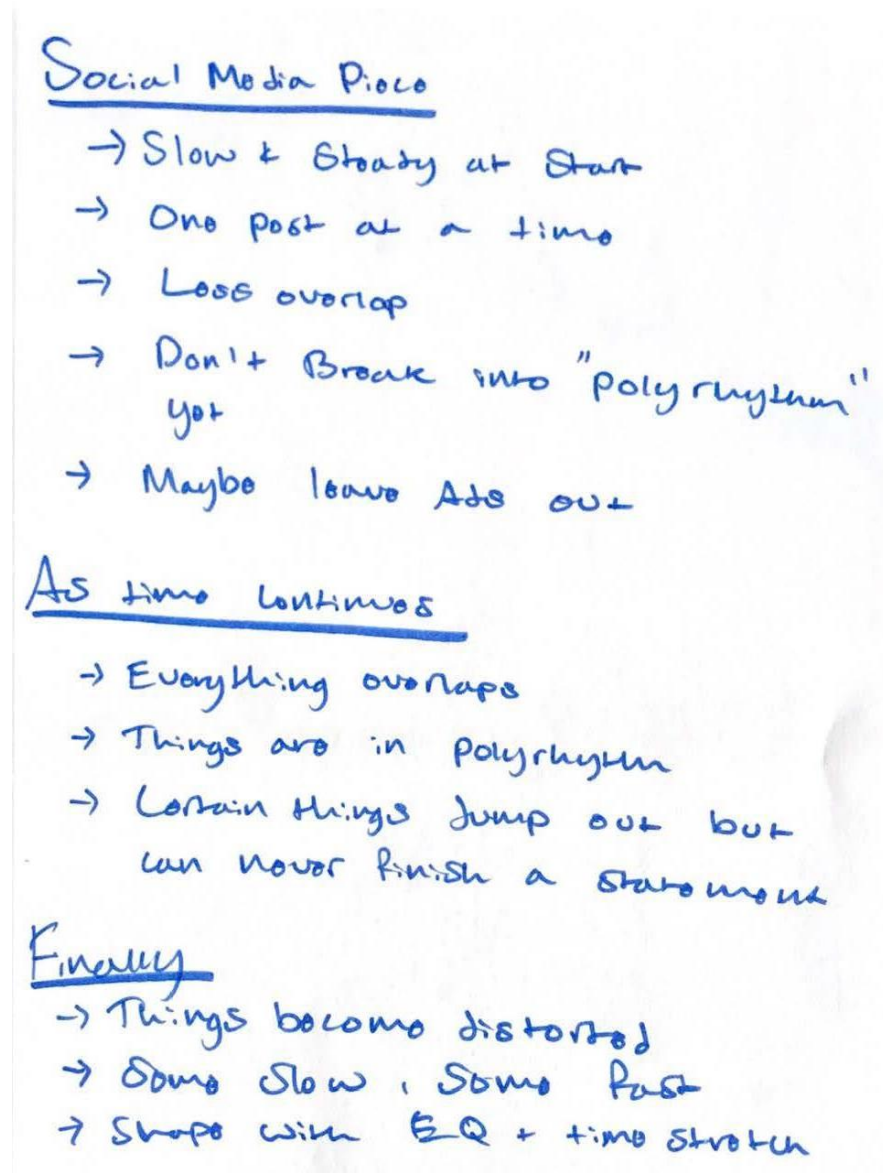 Social Media Piece
→ Slow & Steady at Start
→ One post at a time
→ Less overlap
→ Don't Break into "polyrhythm"
yet
→ Maybe leave Ads out
As time continues
→ Everything overlaps
→ Things are in polyrhythm
→ Certain things jump out but
can never finish a statement
Finally
→ Things become distorted
→ Some slow, some fast
→ Shape with EQ + time stretch